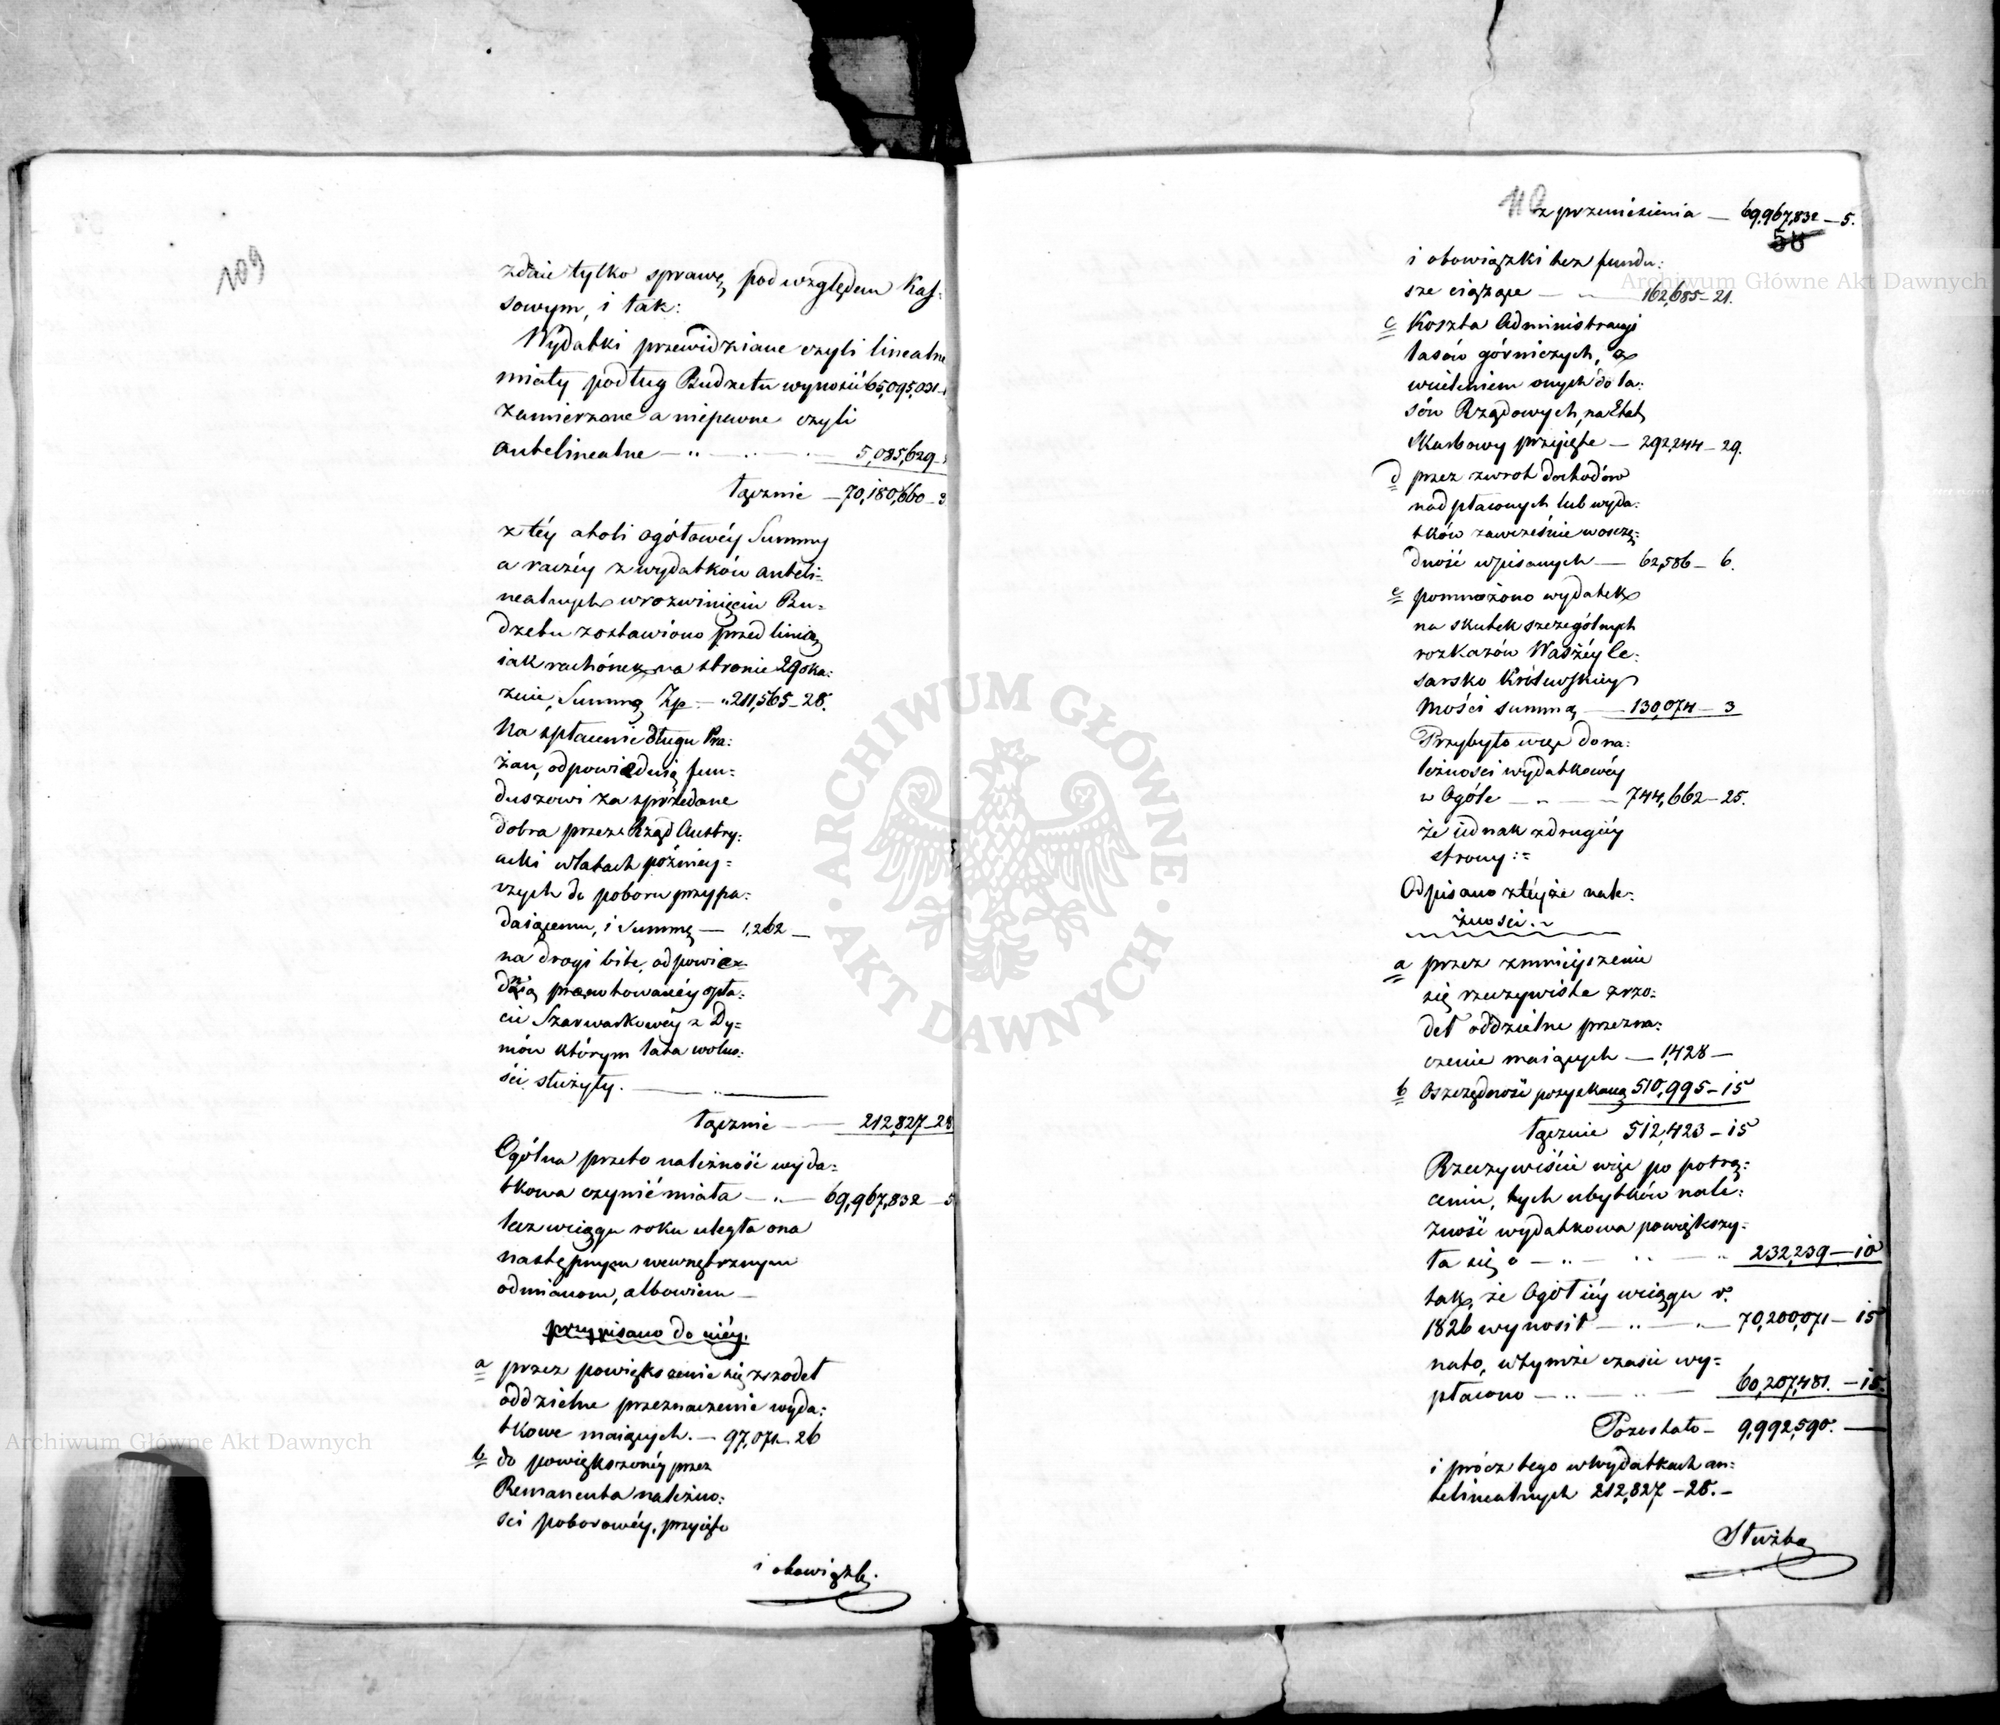 109
zdaie tylko sprawę, pod względem Kas-
sowym, i tak:
Wydatki przewidziane czyli linealne
miały podług Budżetu wynosić 65,095,031
zamierzone a niepewne czyli
antelinealne — 5,085,629
łącznie — 70,180,660 — 3
z téy atoli ogółowéy Summy
a raczéy z wydatków anteli-
nealnych w rozwinięciu Bu-
dżetu zostawiono przed linią
iak rachónek na stronie 29 oka-
zuie, Summę Zp. — 211,565 — 28.
Na spłacenie długu Pra-
żan, odpowiednią fun-
duszowi za sprzedane
dobra przez Rząd Austry-
acki w latach późniey-
szych do poboru przypa-
daiącemu, i Summę — 1,262 —
na drogi bite, odpowie-
dnią opła-
cie Szarwarkowéy z Dy-
mów którym lata wolno-
ści służyły.
łącznie — 212,827 — 28
Ogólna przeto należność wyda-
tkowa czynić miała — 69,967,832 — 5
lecz w ciągu roku uległa ona
następnym wewnętrznym
odmianom, albowiem —
przypisano do niéy.
a przez powiększenie się zrzódeł
oddzielne przeznaczenie wyda-
tkowe maiących. — 97,071 — 26
b do powiększonéy przez
Remanenta należno-
ści poborowéy, przyięte
i obowiązki
110
z przeniesienia — 69,967,832 — 5.
58
i obowiązki bez fundu-
sze ciążące — 162,685 — 21.
c Koszta Administracyi
lasów górniczych, z
wcieleniem onych do la-
sów Rządowych, na Etat
Skarbowy przyięte — 292,244 — 29.
d przez zwrot dochodów
nadpłaconych lub wyda-
tków zawcześnie w oszczę-
dność wpisanych — 62,586 — 6.
e pomnożono wydatek
na skutek szczególnych
rozkazów Waszéy Ce-
sarsko Królewskiey
Mości summą — 130,074 — 3
Przybyło więc do na-
leżności wydatkowéy
w Ogóle — 744,662 — 25.
że iednak z drugiéy
strony:
Odpisano z téyże nale-
żności.
a przez zmnieyszenie
się rzeczywiste zrzó-
deł oddzielne przezna-
czenie maiących — 1,428 —
b Oszczędność pozyskaną 510,995 — 15
łącznie 512,423 — 15
Rzeczywiście więc po potrą-
ceniu, tych ubytków nale-
żność wydatkowa powiększy-
ła się o — 232,239 — 10
tak, że Ogół iéy w ciągu r.
1826 wynosił — 70,200,071 — 15
na to, w tymże czasie wy-
płacono — 60,207,481. — 15.
Pozostało — 9,992,590. —
i prócz tego w wydatkach an-
telinealnych 212,827 — 28. —
Służba
Archiwum Główne Akt Dawnych
Archiwum Główne Akt Dawnych
ARCHIWUM GŁÓWNE
AKT DAWNYCH